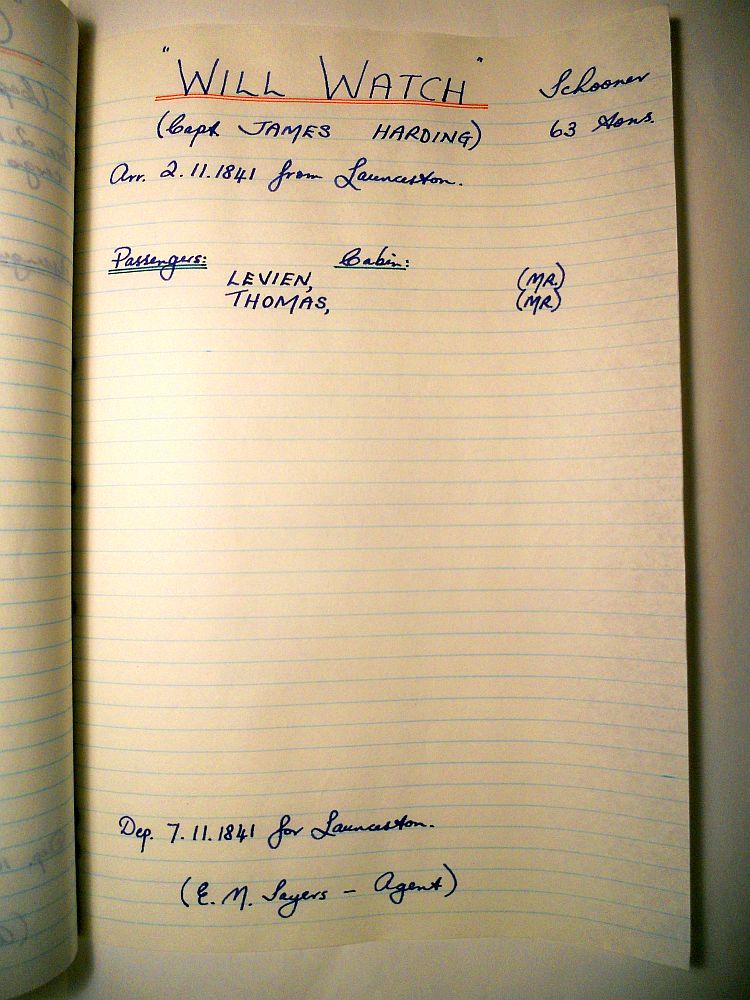 "WILL WATCH" Schooner
(Capt JAMES HARDING) 63 tons.
Arr. 2.11.1841 from Launceston.
Passengers: Cabin:
LEVIEN, (MR.)
THOMAS, (MR.)
Dep. 7.11.1841 for Launceston.
(E. M. Sayers – Agent)